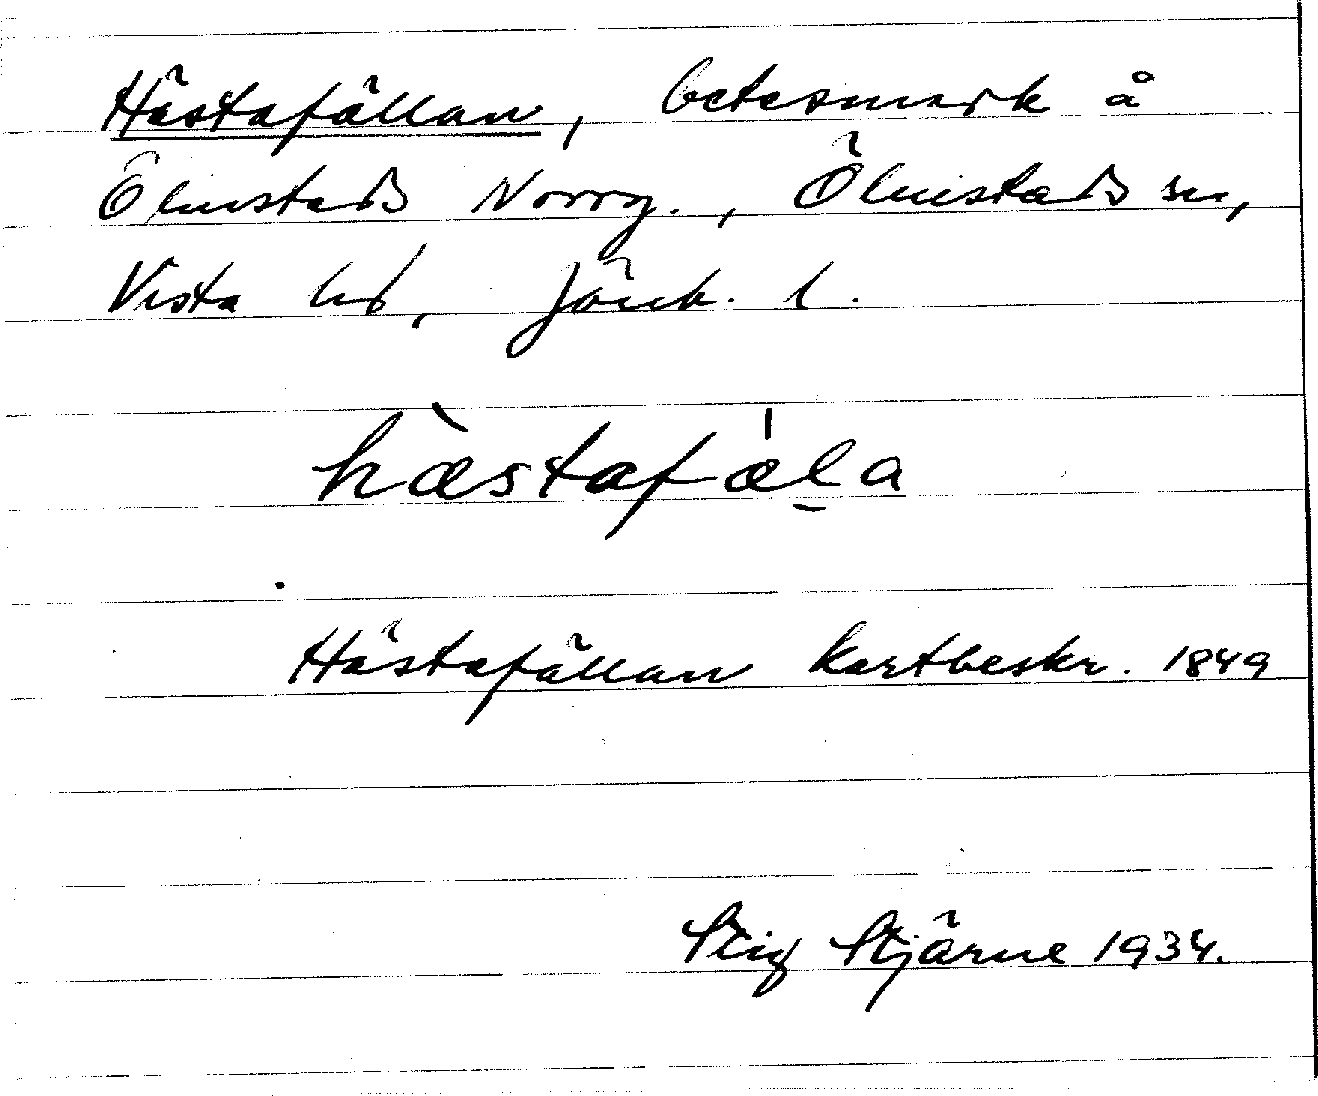 Hästafällan, betesmark å
Ölmstads Norrg., Ölmstads sn,
Vista hd, Jönk. l.
hæ̀stafæ̍l̠a
Hästafällan kartbeskr. 1849
Stig Stjärne 1934.